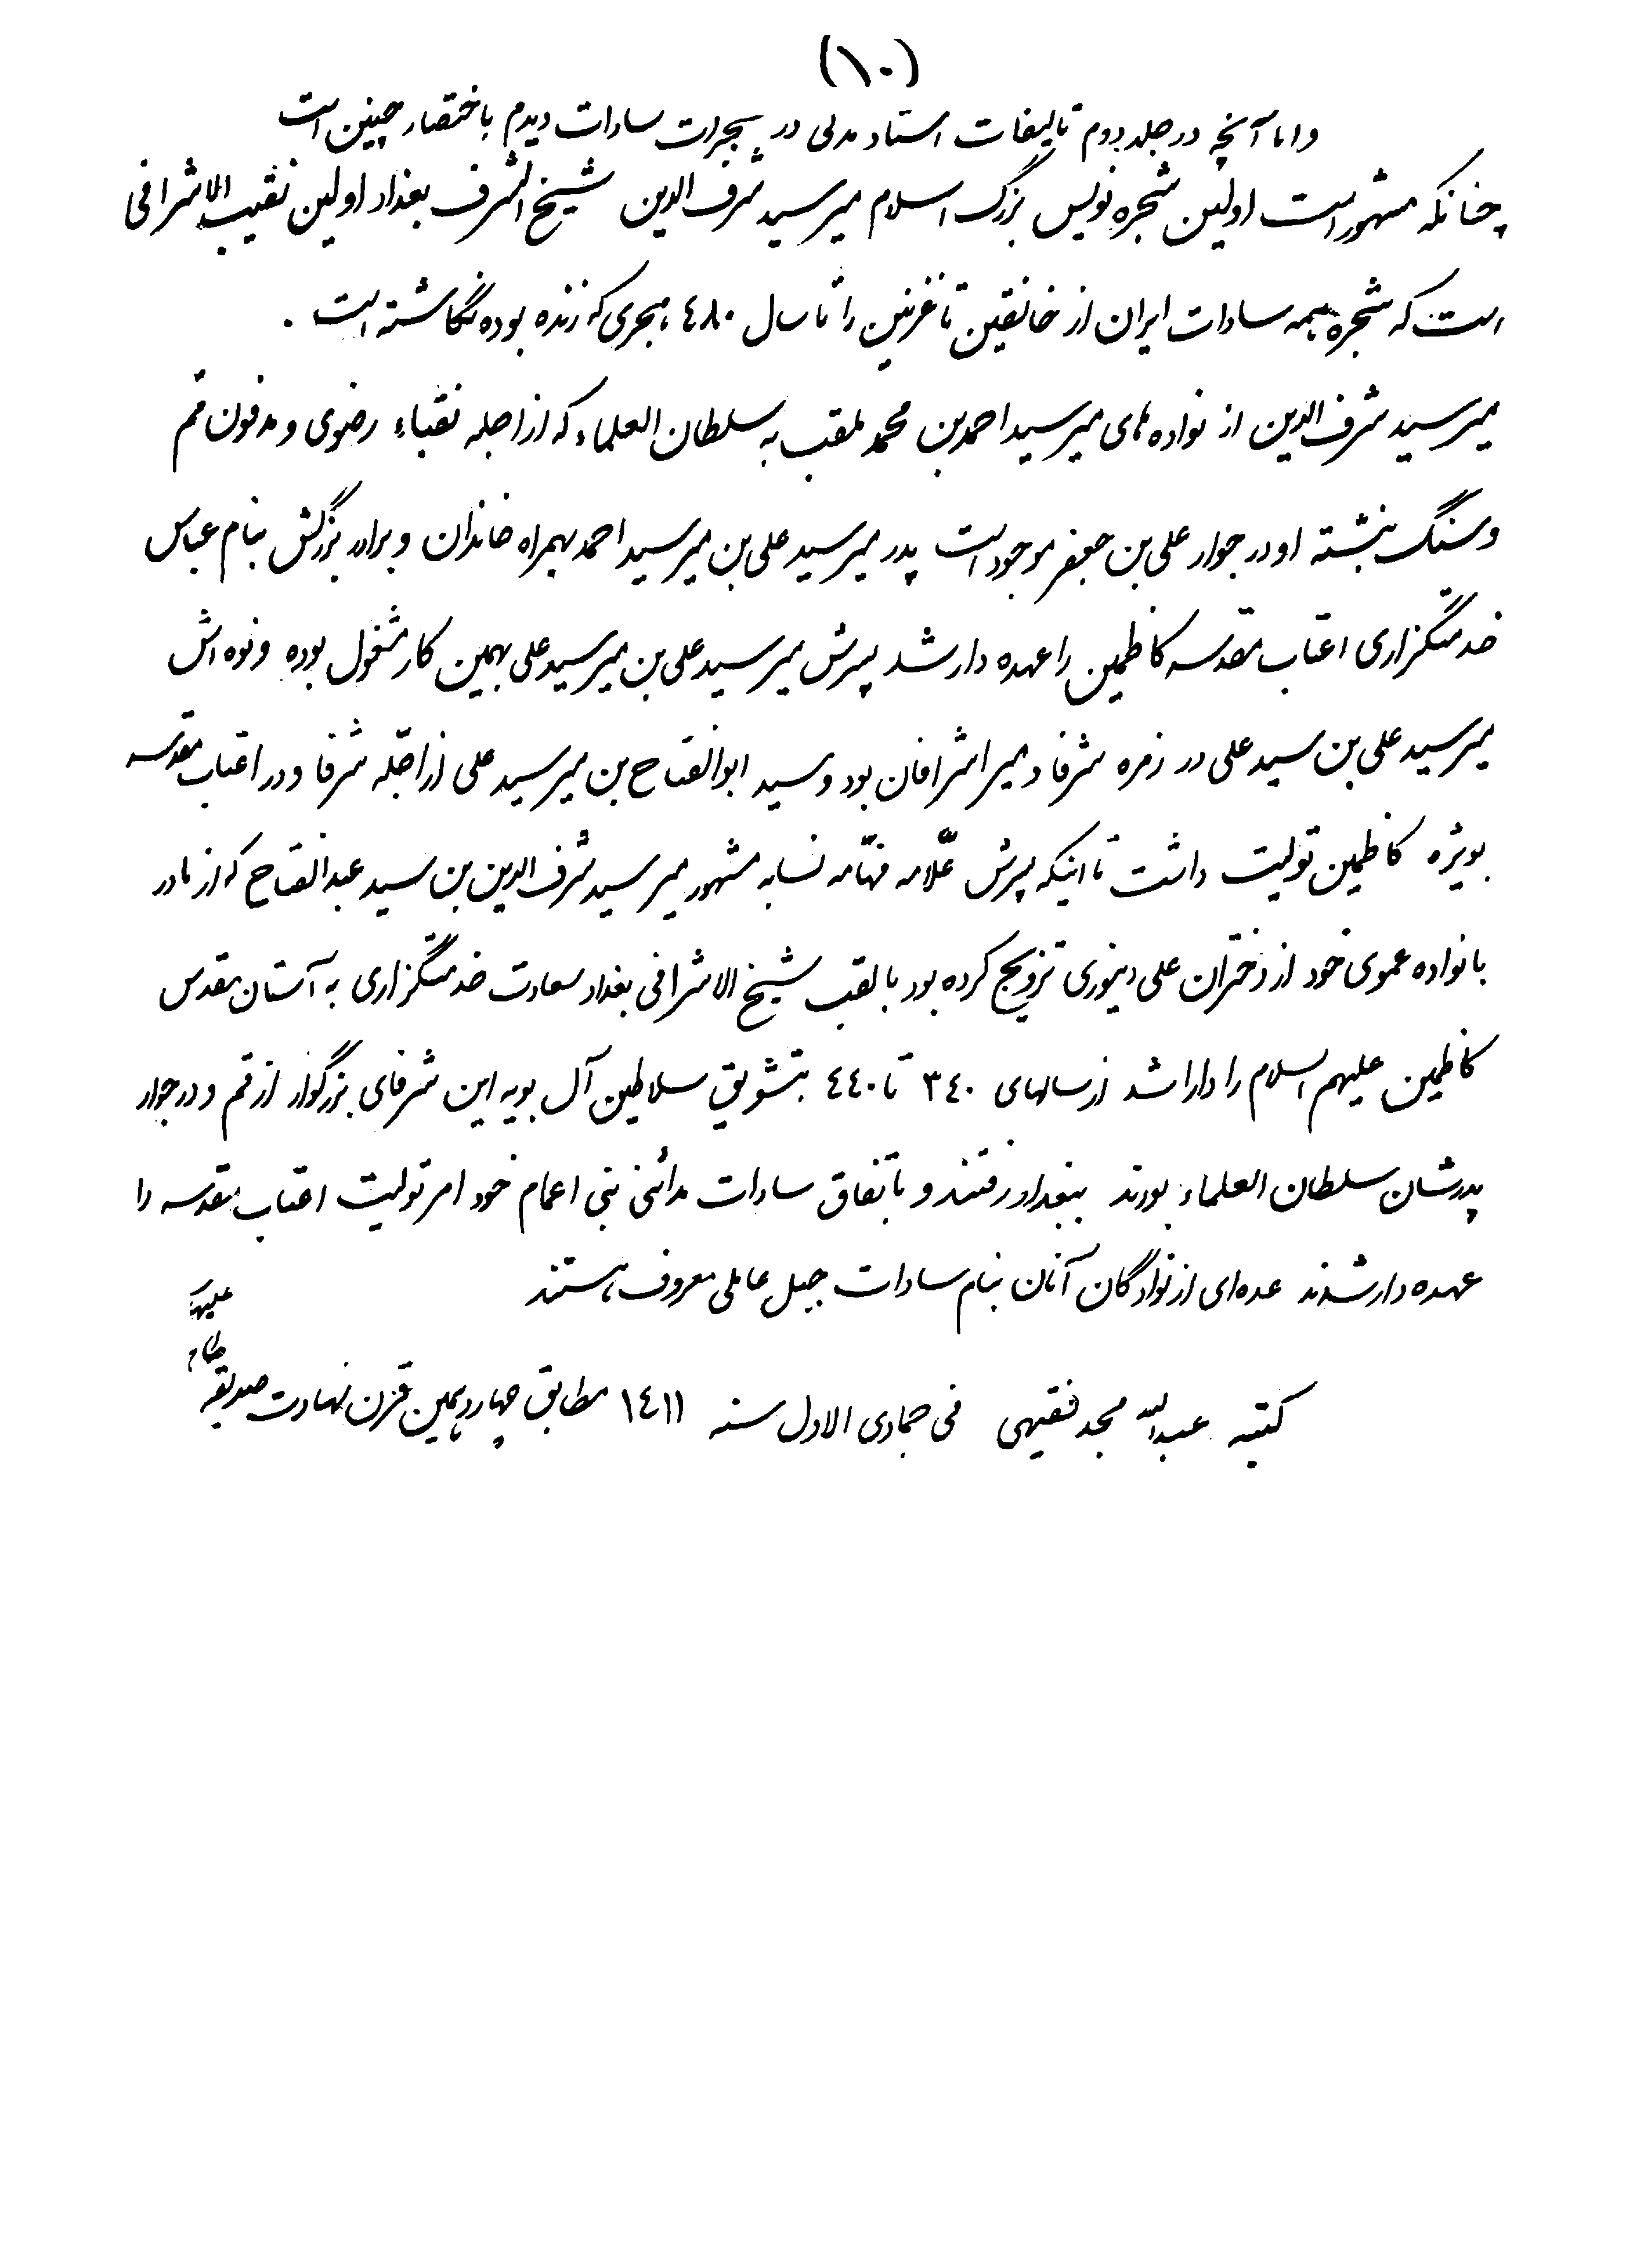 (۱۰)
و اما آنچه در جلد دوم تالیفات استاد مدنی در شجرات سادات دیدم باختصار چنین است
چنانکه مشهور است اولین شجره نویس بزرگ اسلام میر سید شرف الدین شیخ الشرف بغداد اولین نقیب الاشرافی
است که شجره همه سادات ایران از خانقین تا غزنین را تا سال ٤٨٠ هجری که زنده بوده نگاشته است .
میر سید شرف الدین از نواده های میر سید احمد بن محمد ملقب به سلطان العلماء که از اجله نقباء رضوی و مدفون قم
و سنگ نبشته او در جوار علی بن جعفر موجود است پدر میر سید علی بن میر سید احمد بهمراه خاندان و برادر بزرگش بنام عباس
خدمتگزاری اعتاب مقدسه کاظمین را عهده دار شد پسرش میر سید علی بن میر سید علی بهمین کار مشغول بوده و نوه اش
میر سید علی بن سید علی در زمره شرفا و میر اشرافان بود و سید ابوالفتاح بن میر سید علی از اجّله شرفا و در اعتاب مقدسه
بویژه کاظمین تولیت داشت تا اینکه پسرش علّامه فهّامه نسابه مشهور میر سید شرف الدین بن سید عبدالفتاح که از مادر
با نواده عموی خود از دختران علی دینوری تزویج کرده بود با لقب شیخ الاشرافی بغداد سعادت خدمتگزاری به آستان مقدس
کاظمین علیهم السلام را دارا شد از سالهای ٣٤٠ تا ٤٤٠ بتشویق سلاطین آل بویه این شرفای بزرگوار از قم و در جوار
پدرشان سلطان العلماء بودند ببغداد رفتند و باتفاق سادات مدائنی بنی اعمام خود امر تولیت اعتاب مقدسه را
عهده دار شدند عده‌ای از نوادگان آنان بنام سادات جبل عاملی معروف هستند
کتبه عبدالله مجد فقیهی فی جمادی الاول سنه ١٤١١ مطابق چهاردهمین قرن شهادت صدیقه